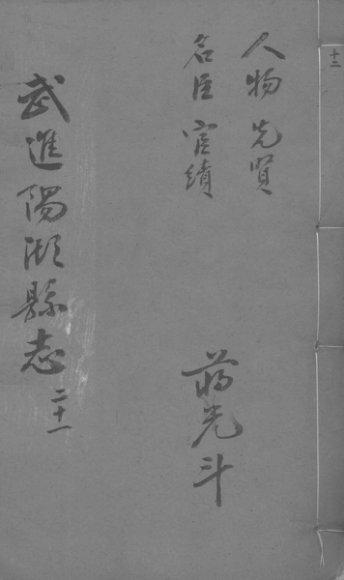 十二
人物 先賢
名臣 宦績
蔣光斗
武進陽湖縣志 二十一